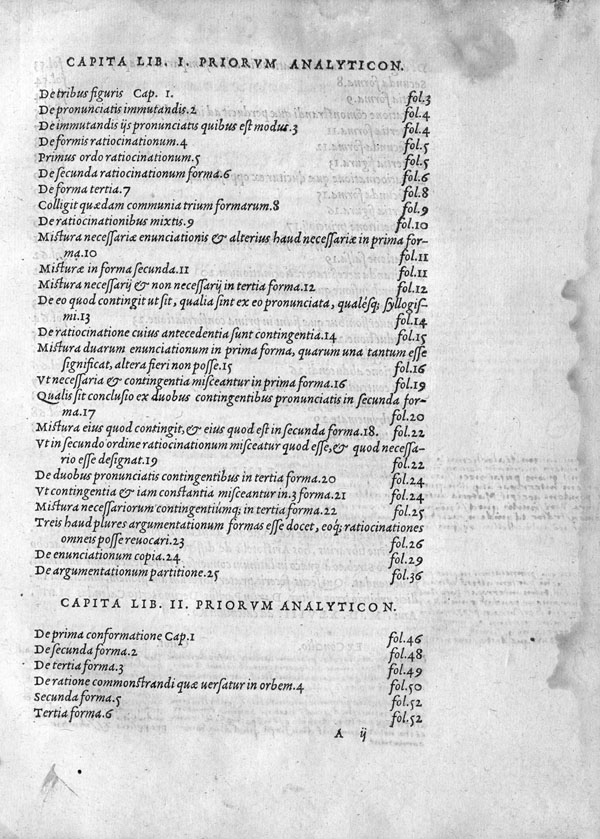 CAPITA LIB. I. PRIORVM ANALYTICON.
De tribus figuris Cap. 1. fol.3
De pronunciatis immutandis.2 fol.4
De immutandis ijs pronunciatis quibus est modus.3 fol.4
De formis ratiocinationum.4 fol.5
Primus ordo ratiocinationum.5 fol.5
De secunda ratiocinationum forma.6 fol.6
De forma tertia.7 fol.8
Colligit quædam communia trium formarum.8 fol.9
De ratiocinationibus mixtis.9 fol.10
Mistura necessariæ enunciationis & alterius haud necessariæ in prima for-
ma.10 fol.11
Misturæ in forma secunda.11 fol.11
Mistura necessarij & non necessarij in tertia forma.12 fol.12
De eo quod contingit ut sit, qualia sint ex eo pronunciata, qualésq; syllogis-
mi.13 fol.14
De ratiocinatione cuius antecedentia sunt contingentia.14 fol.15
Mistura duarum enunciationum in prima forma, quarum una tantum esse
significat, altera fieri non posse.15 fol.16
Vt necessaria & contingentia misceantur in prima forma.16 fol.19
Qualis sit conclusio ex duobus contingentibus pronunciatis in secunda for-
ma.17 fol.20
Mistura eius quod contingit, & eius quod est in secunda forma.18. fol.22
Vt in secundo ordine ratiocinationum misceatur quod esse, & quod necessa-
rio esse designat.19 fol.22
De duobus pronunciatis contingentibus in tertia forma.20 fol.24
Vt contingentia & iam constantia misceantur in.3 forma.21 fol.24
Mistura necessariorum contingentiúmq; in tertia forma.22 fol.25
Treis haud plures argumentationum formas esse docet, eoq; ratiocinationes
omneis posse reuocari.23 fol.26
De enunciationum copia.24 fol.29
De argumentationum partitione.25 fol.36
CAPITA LIB. II. PRIORVM ANALYTICON.
De prima conformatione Cap.1 fol.46
De secunda forma.2 fol.48
De tertia forma.3 fol.49
De ratione commonstrandi quæ uersatur in orbem.4 fol.50
Secunda forma.5 fol.52
Tertia forma.6 fol.52
A ij